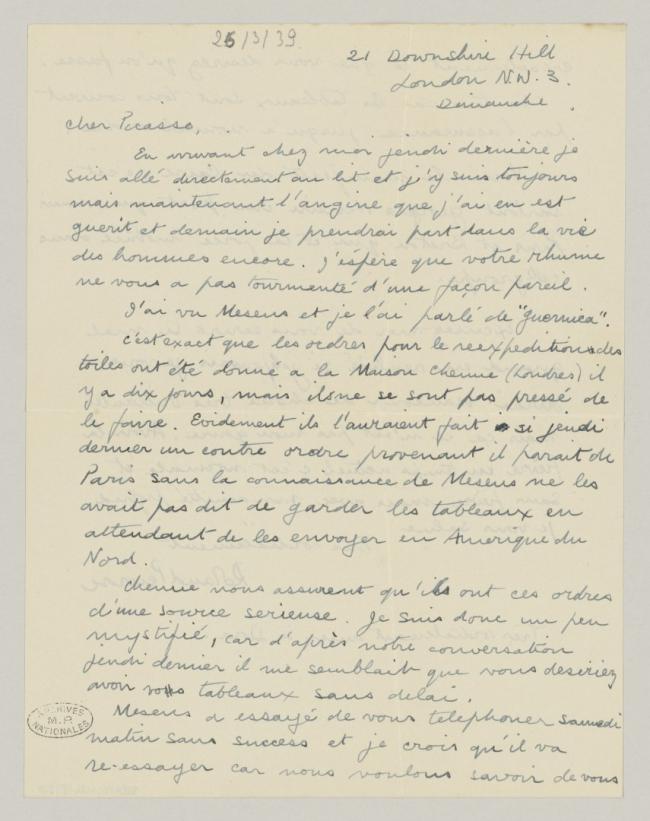 26/3/39
21 Downshire Hill
London N.W.3.
Dimanche.
cher Picasso,
En arrivant chez moi jeudi dernière je
suis allé directement au lit et j'y suis toujours
mais maintenant l'angine que j'ai en est
guerit et demain je prendrai part dans la vie
des hommes encore. J'éspère que votre rhume
ne vous a pas tourmenté d'une façon pareil.
J'ai vu Mesens et je l'ai parlé de "Guernica".
c'est exact que les ordres pour le reexpedition des
toiles ont été donné a la Maison Chenue (Londres) il
y a dix jours, mais ils ne se sont pas pressé de
le faire. Evidement ils l'auraient fait si jeudi
dernier un contre ordre provenant il parait de
Paris sans la connaissance de Mesens ne les
avait pas dit de garder les tableaux en
attendant de les envoyer en Amerique du
Nord.
Chenue nous assurent qu'ils ont ces ordres
d'une source serieuse. Je suis donc un peu
mystifié, car d'après notre conversation
jeudi dernier il me semblait que vous desiriez
avoir vos tableaux sans delai.
Mesens a essayé de vous telephoner samedi
matin sans success et je crois qu'il va
re-essayer car nous voulons savoir de vous
ARCHIVES
M.P.
NATIONALES